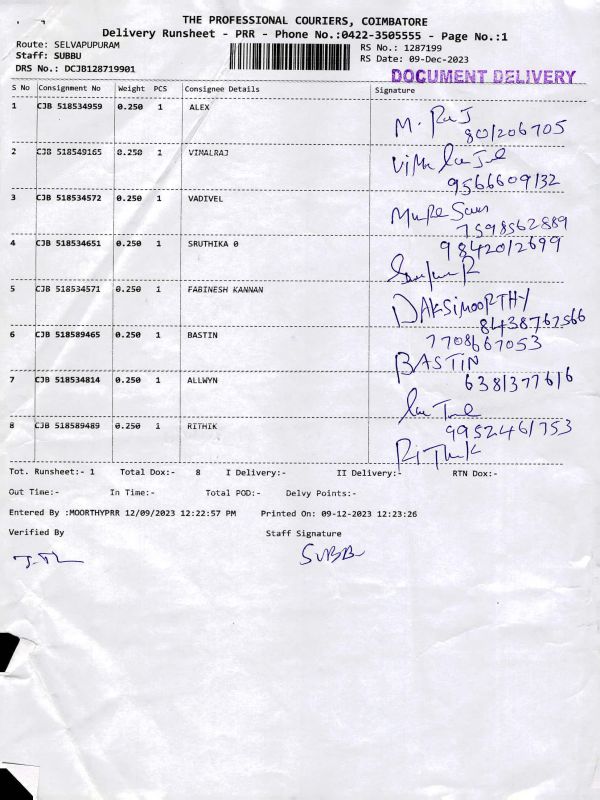 THE PROFESSIONAL COURIERS, COIMBATORE
Delivery Runsheet - PRR - Phone No.:0422-3505555 - Page No.:1
Route: SELVAPUPURAM
RS No.: 1287199
Staff: SUBBU
RS Date: 09-Dec-2023
DRS No.: DCJB128719901
DOCUMENT DELIVERY
S No Consignment No Weight PCS Consignee Details Signature
1 CJB 518534959 0.250 1 ALEX
M. Raj
801206705
2 CJB 518549165 0.250 1 VIMALRAJ
9566609132
3 CJB 518534572 0.250 1 VADIVEL
7598562889
4 CJB 518534651 0.250 1 SRUTHIKA 0
9842012699
5 CJB 518534571 0.250 1 FABINESH KANNAN
DAKSIMOORTHY
8438767566
6 CJB 518589465 0.250 1 BASTIN
7708667053
BASTIN
7 CJB 518534814 0.250 1 ALLWYN
6381377616
8 CJB 518589489 0.250 1 RITHIK
9952461753
RiThik
Tot. Runsheet:- 1 Total Dox:- 8 I Delivery:- II Delivery:- RTN Dox:-
Out Time:- In Time:- Total POD:- Delvy Points:-
Entered By :MOORTHYPRR 12/09/2023 12:22:57 PM Printed On: 09-12-2023 12:23:26
Verified By Staff Signature
SUBBU